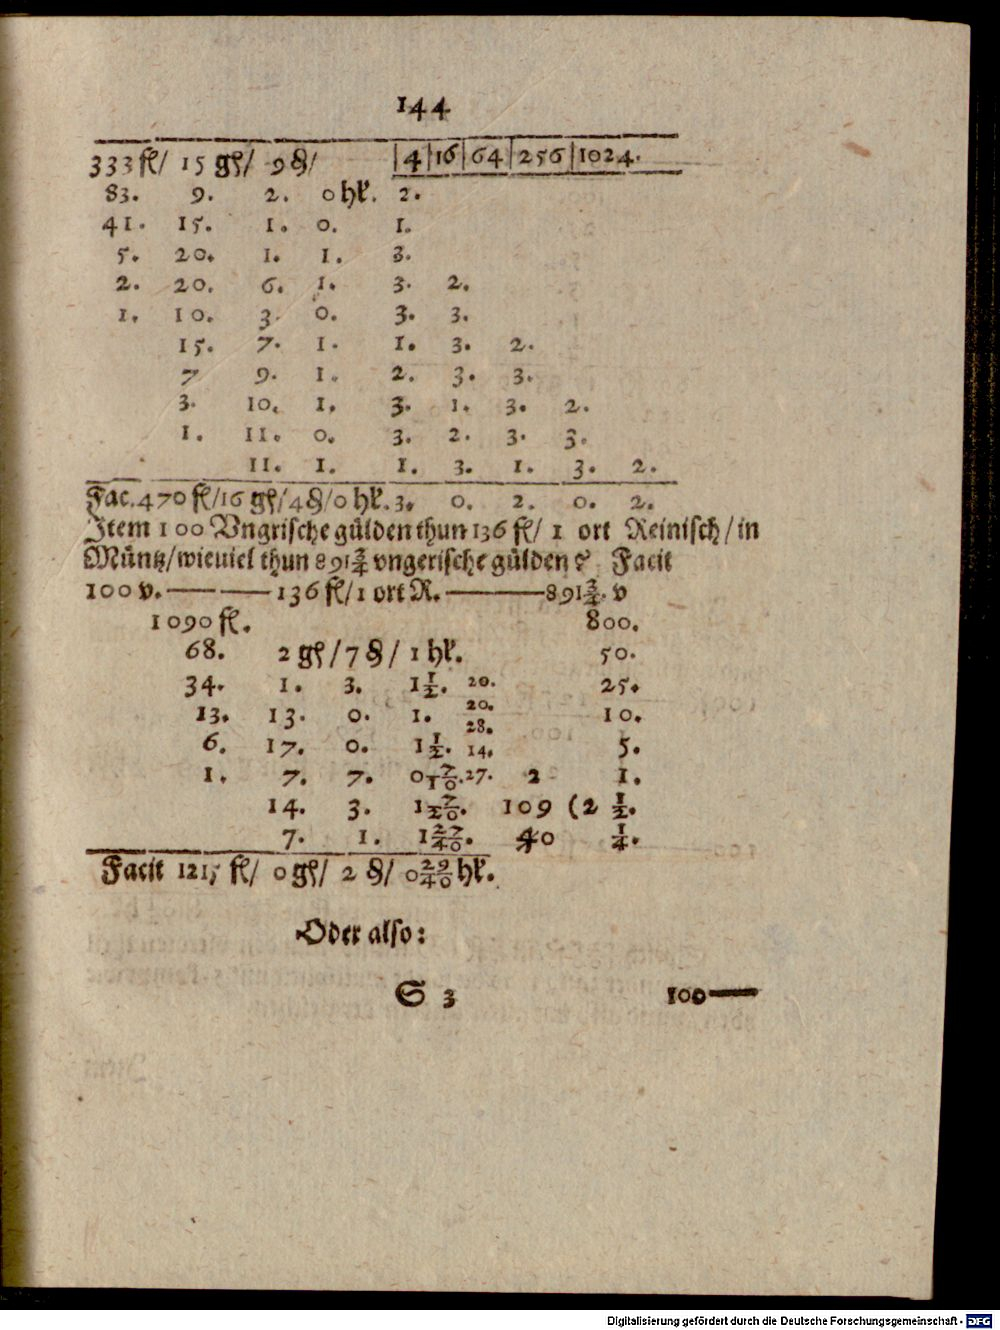 144
333 fl/ 15 gꝭ/ 9 ₰/ |4|16|64|256|1024.
83. 9. 2. 0 hlꝭ. 2.
41. 15. 1. 0. 1.
5. 20. 1. 1. 3.
2. 20. 6. 1. 3. 2.
1. 10. 3. 0. 3. 3.
15. 7. 1. 1. 3. 2.
7 9. 1. 2. 3. 3.
3. 10. 1. 3. 1. 3. 2.
1. 11. 0. 3. 2. 3. 3.
11. 1. 1. 3. 1. 3. 2.
Fac. 470 fl/16 gꝭ/4₰/0 hlꝭ. 3. 0. 2. 0. 2.
Item 100 Vngrische gülden thun 136 fl/ 1 ort Reinisch/in
Müntz/wieuiel thun 891¾ vngerische gülden? Facit
100 v.——— 136 fl/1 ort R.———891¾. v
1090 fl. 800.
68. 2 gꝭ/7 ₰/ 1 hlꝭ. 50.
34. 1. 3. 1½. 20. 25.
20.
13. 13. 0. 1. 10.
28.
6. 17. 0. 1½. 14. 5.
1. 7. 7. 0 7/10. 27. 2 1.
14. 3. 1 7/20. 109 (2 ½.
7. 1. 1 27/40. 40 ¼.
Facit 1215 fl/ 0 gꝭ/ 2 ₰/ 0 29/40 hlꝭ.
Oder also:
S 3 100——
Digitalisierung gefördert durch die Deutsche Forschungsgemeinschaft - DFG